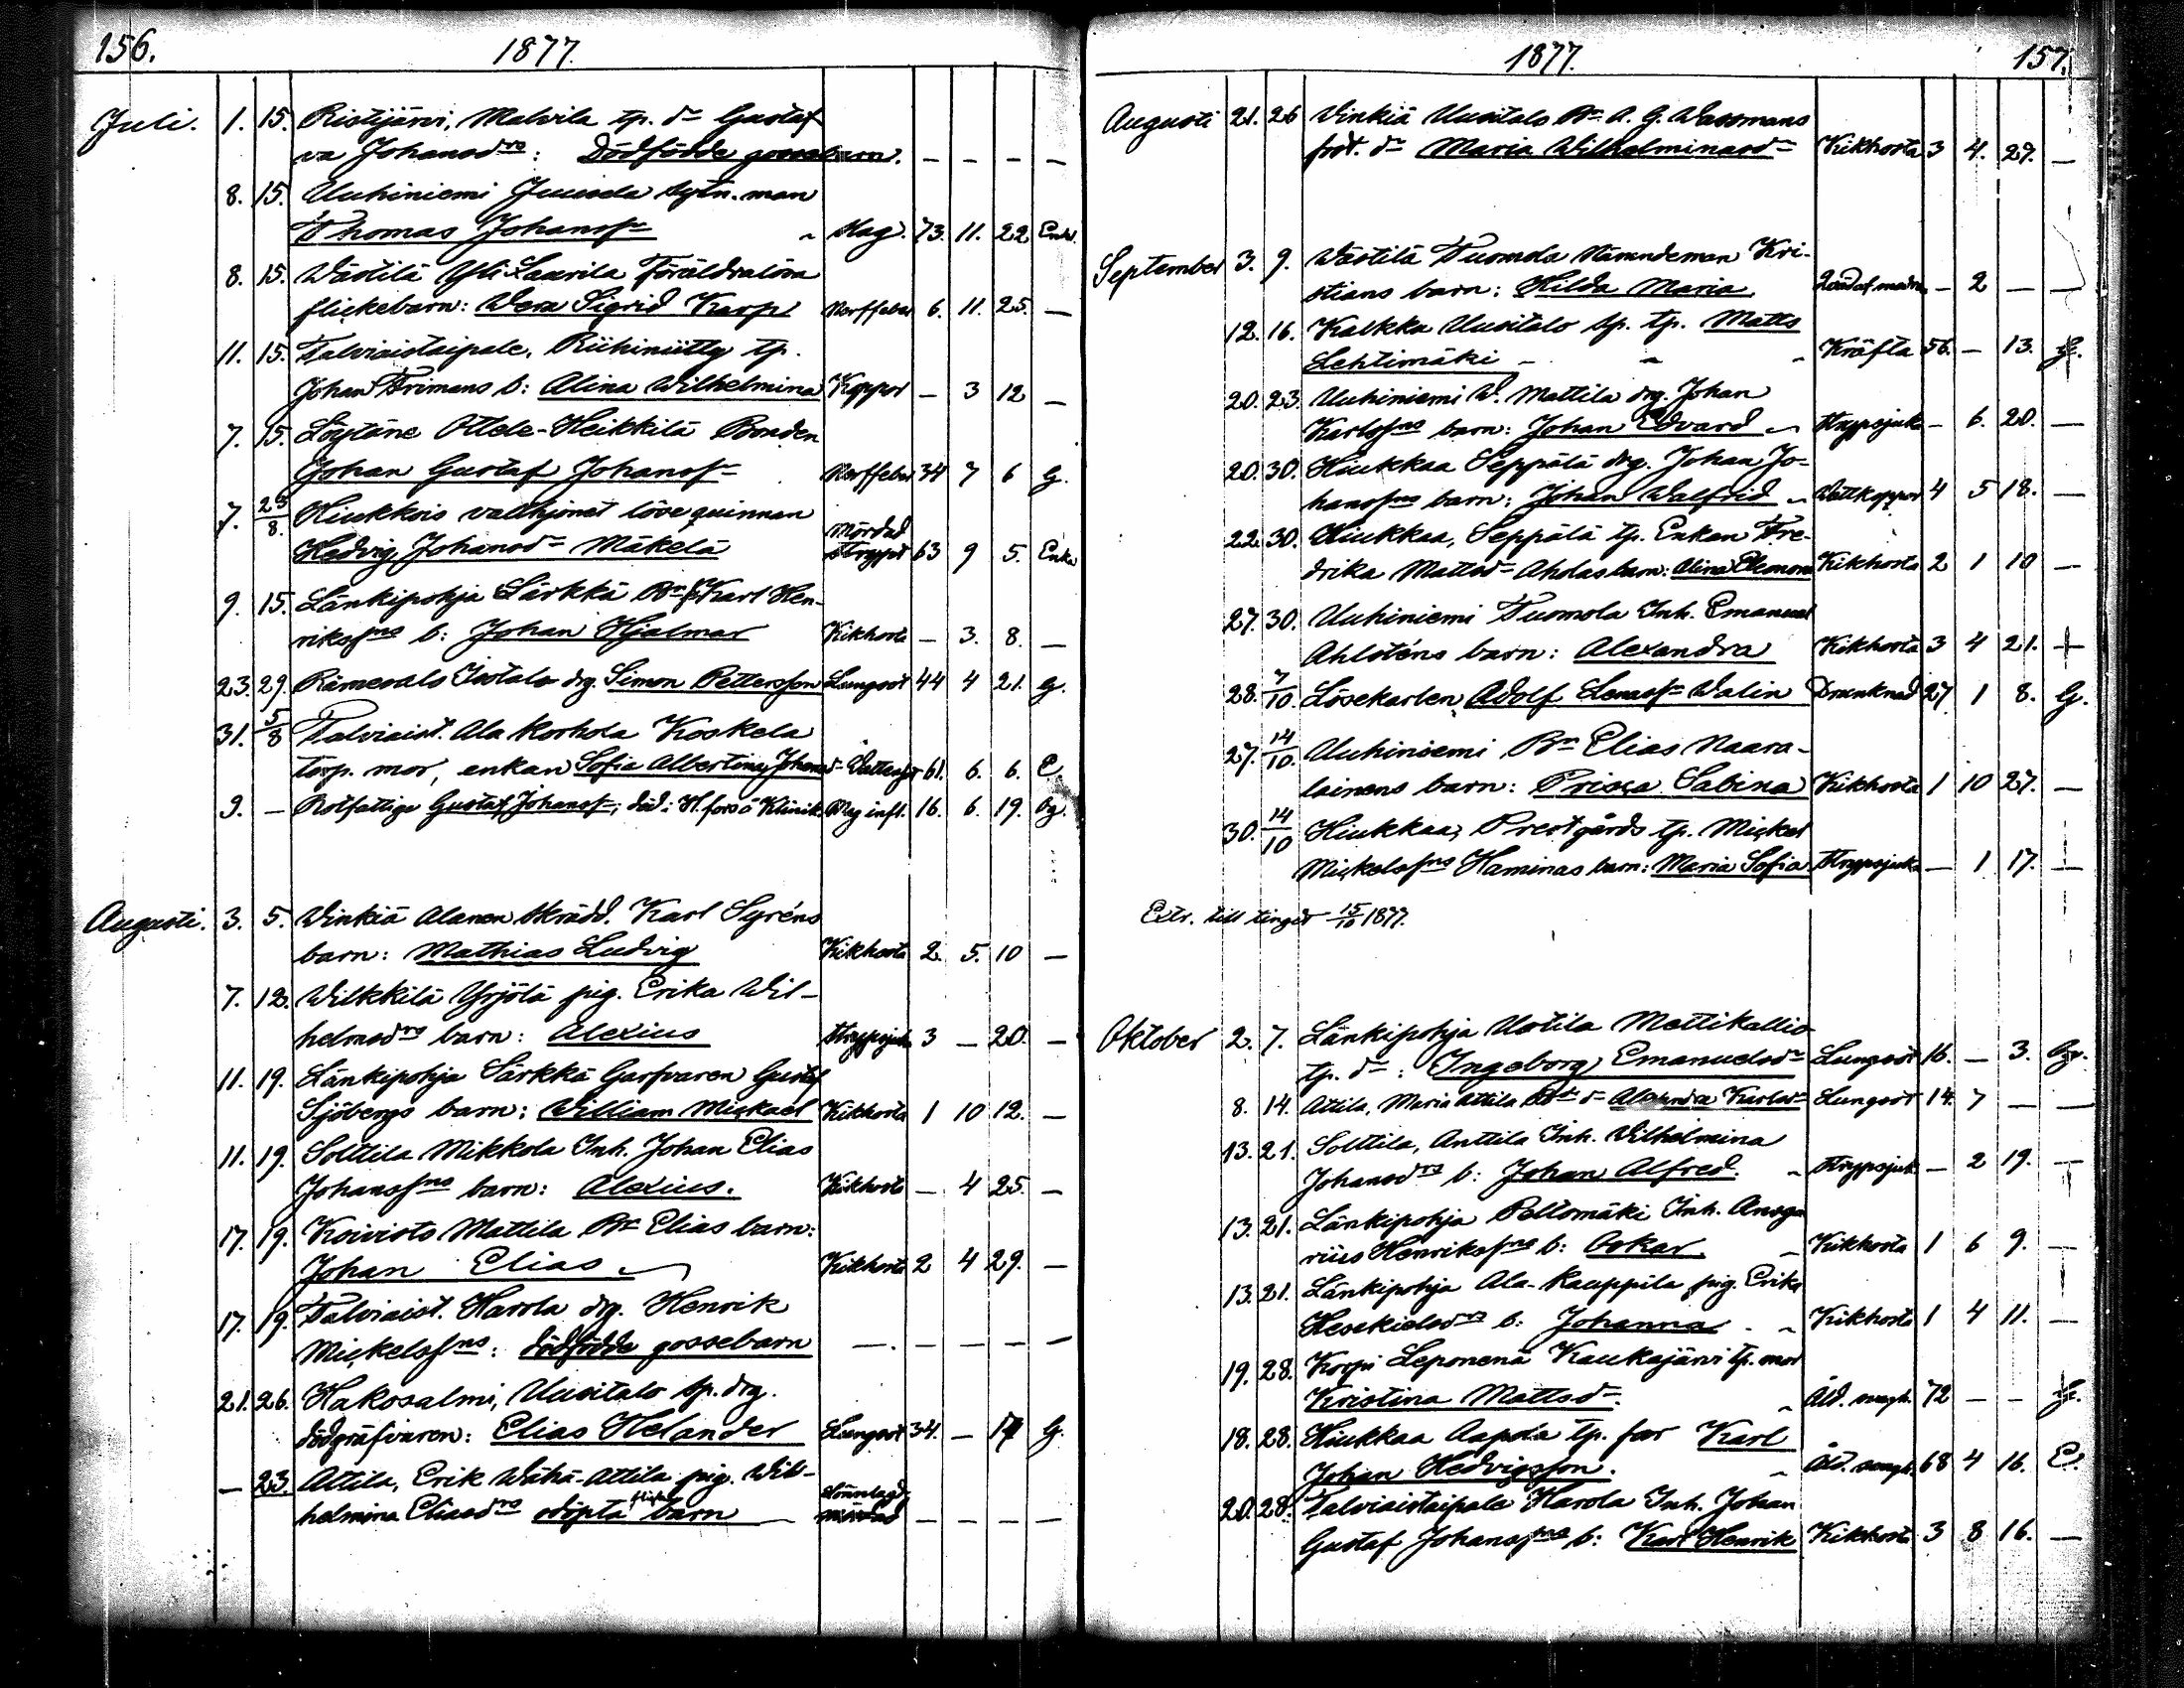 156. 1877.
Juli. 1. 15. Ristijärvi, Malvila tp. dr Gustaf
va Johansdrs: Dödfödde gossebarn. — — — —
8. 15. Uuhiniemi Juusela sytn. man
Thomas Johansfn Mag. 73. 11. 22 Enkl.
8. 15. Wästilä Yli Laurila föräldralösa
flickebarn: Wera Sigrid Karp Nerffeber 6. 11. 25. —
11. 15. Talviaistaipale, Riihiniitty tp.
Johan Frimans b: Alina Wilhelmina Koppor — 3 12 —
7. 15. Löytäne Ottele-Heikkilä Bonden
Johan Gustaf Johansfn Nerffeber 34 7 6 G.
7. 23/8. Hiukkois vallhjonet löse quinnan
Hedvig Johansdr Mäkelä Mördad Strypt 63 9 5. Enka
9. 15. Länkipohja Särkkä Bn Karl Hen-
riksfns b: Johan Hjalmar Kikhosta — 3. 8. —
23. 29. Rämesalo Isotalo drg. Simon Pettersson Lungsot 44 4 21. G.
31. 5/8 Talviaist. Ala Korhola Koskela
torp. mor, enkan Sofia Albertina Johansdr Vattusot 61. 6. 6. E.
9. — Rotfattige Gustaf Johansfn, död i H.fors å Klinik. Mag infl. 16. 6. 19. Og.
Augusti. 3. 5. Vinkiä Alanen Skrädd. Karl Syréns
barn: Mathias Ludvig Kikhosta 2. 5. 10 —
7. 12. Wilkkilä Yrjölä pig. Erika Wil-
helmsdrs barn: Alexius Strypsjuka 3 — 20. —
11. 19. Länkipohja Särkkä Garfvaren Gustaf
Sjöbergs barn: William Mickael Kikhosta 1 10 12. —
11. 19. Solttila Mikkola Inh. Johan Elias
Johansfns barn: Alexius. Kikhosta — 4 25. —
17. 19. Koivisto Mattila Bn Elias barn:
Johan Elias Kikhosta 2 4 29. —
17. 19. Talviaist. Harola drg. Henrik
Mickelsfns: dödfödde gossebarn — — — — —
21. 26. Hakosalmi, Uusitalo sp. drg.
dödgräfvaren: Elias Helander Lungsot 34. — 17 G.
— 23. Attila, Erik Wähä-Attila pig. Wil-
helmina Eliasdrs odöpta flicke barn — — — —
1877. 157.
Augusti 21. 26 Vinkiä Uusitalo Bn A. G. Wassmans
fodr. dr Maria Wilhelminasdr Kikhosta 3 4. 29. —
September 3. 9. Wästilä Tuomola Nämndeman Kri-
stians barn: Hilda Maria — 2 — —
12. 16. Kalkka Uusitalo sp. tp. Matts
Lehtimäki Kräfta 56. — 13. G.
20. 23. Uuhiniemi W. Mattila drg. Johan
Karlsfns barn: Johan Edvard Strypsjuka — 6. 20. —
20. 30. Hiukkaa Seppälä drg. Johan Jo-
hansfns barn: Johan Walfrid Wattkoppor 4 5 18. —
22. 30. Hiukkaa, Seppälä tp. Enkan Fre-
drika Mattsdr Aholas barn: Alina Eleonora Kikhosta 2 1 10 —
27. 30. Uuhiniemi Tuomola Inh. Emanuel
Ahlsténs barn: Alexandra Kikhosta 3 4 21. —
28. 7/10. Lösekarlen Adolf Lenasfn Walin Drunknad 27 1 8. G.
27. 14/10. Uuhiniemi Bn Elias Naara-
lainens barn: Prisca Sabina Kikhosta 1 10 27. —
30. 14/10 Hiukkaa, Prestgårds tp. Mickel
Mickelsfns Haminas barn: Maria Sofia Strypsjuka — 1 17. —
Extr. till tinget 15/10 1877.
Oktober 2. 7. Länkipohja Uotila Mettikallio
tp. dr: Ingeborg Emanuelsdr Lungsot 16. — 3. Og.
8. 14. Attila, Maria Attila Bn dr Alexandra Karlsdr Lungsot 14. 7 — —
13. 21. Solttila, Anttila Inh. Vilhelmina
Johansdrs b: Johan Alfred. Strypsjuk. — 2 19. —
13. 21. Länkipohja Peltomäki Inh. Ansga
rius Henriksfns b: Oskar. Kikhosta 1 6 9. —
13. 21. Länkipohja Ala-Kauppila pig. Erika
Hesekielsdrs b: Johanna Kikhosta 1 4 11. —
19. 28. Korpi Leponena Kaukajärvi tp. mor
Kristina Mattsdr. Åld. svagh. 72 — — G.
18. 28. Hiukkaa Aapola tp. far Karl
Johan Hedvigsson. Åld. svagh. 68 4 16. E.
20. 28. Talviaistaipale Harola Inh. Johan
Gustaf Johansfns b: Karl Henrik Kikhosta 3 8 16. —